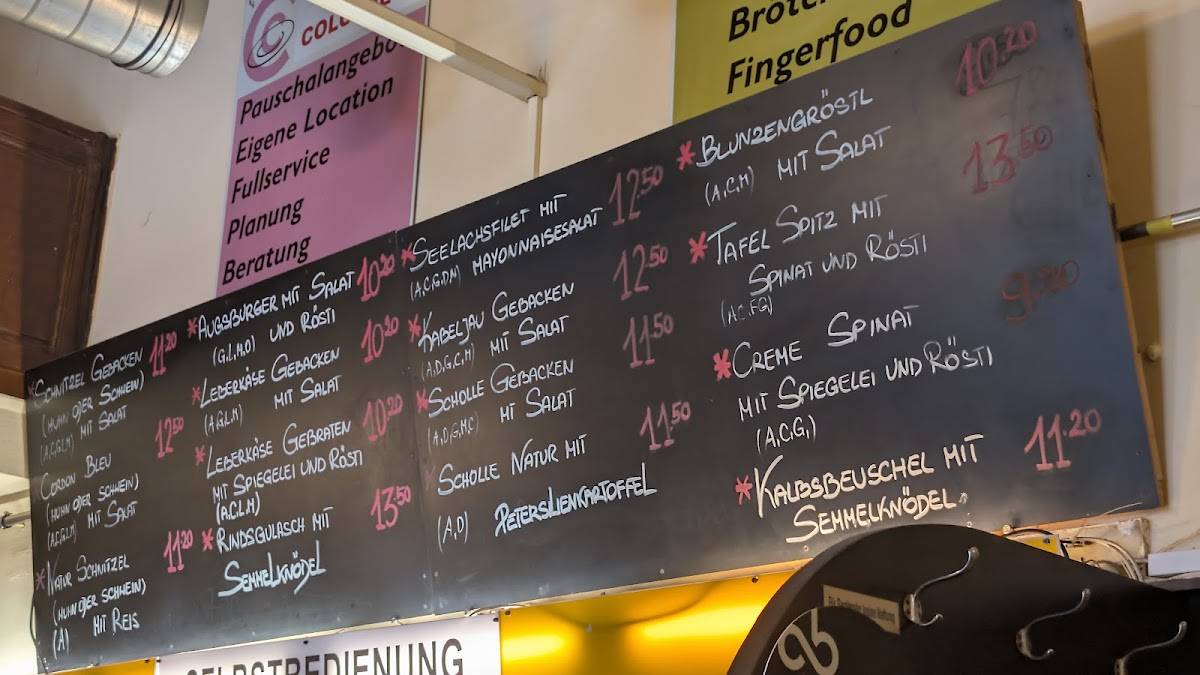 Pauschalangebo
Eigene Location
Fullservice
Planung
Beratung
Fingerfood
SCHNITZEL GEBACKEN 11.20
(HUHN ODER SCHWEIN)
(A,C,G,L,M) MIT SALAT
CORDON BLEU 12.50
(HUHN ODER SCHWEIN)
(A,C,G,L,M) MIT SALAT
* NATUR SCHNITZEL 11.20
(HUHN ODER SCHWEIN)
(A) MIT REIS
* AUGSBURGER MIT SALAT 10.20
(G,L,M,O) UND RÖSTI
* LEBERKÄSE GEBACKEN 10.20
(A,G,L,M) MIT SALAT
* LEBERKÄSE GEBRATEN 10.20
MIT SPIEGELEI UND RÖSTI
(A,C,L,M)
* RINDSGULASCH MIT 13.50
SEMMELKNÖDEL
* SEELACHSFILET MIT 12.50
(A,C,G,D,M) MAYONNAISESALAT
* KABELJAU GEBACKEN 12.50
(A,D,G,C,M) MIT SALAT
* SCHOLLE GEBACKEN 11.50
(A,D,G,M,C) MIT SALAT
SCHOLLE NATUR MIT 11.50
(A,D) PETERSILIENKARTOFFEL
* BLUNZENGRÖSTL 10.20
(A,C,M) MIT SALAT
* TAFEL SPITZ MIT 13.50
SPINAT UND RÖSTI
(A,C,F,G)
* CREME SPINAT 9.20
MIT SPIEGELEI UND RÖSTI
(A,C,G,)
* KALBSBEUSCHEL MIT 11.20
SEMMELKNÖDEL
SELBSTBEDIENUNG